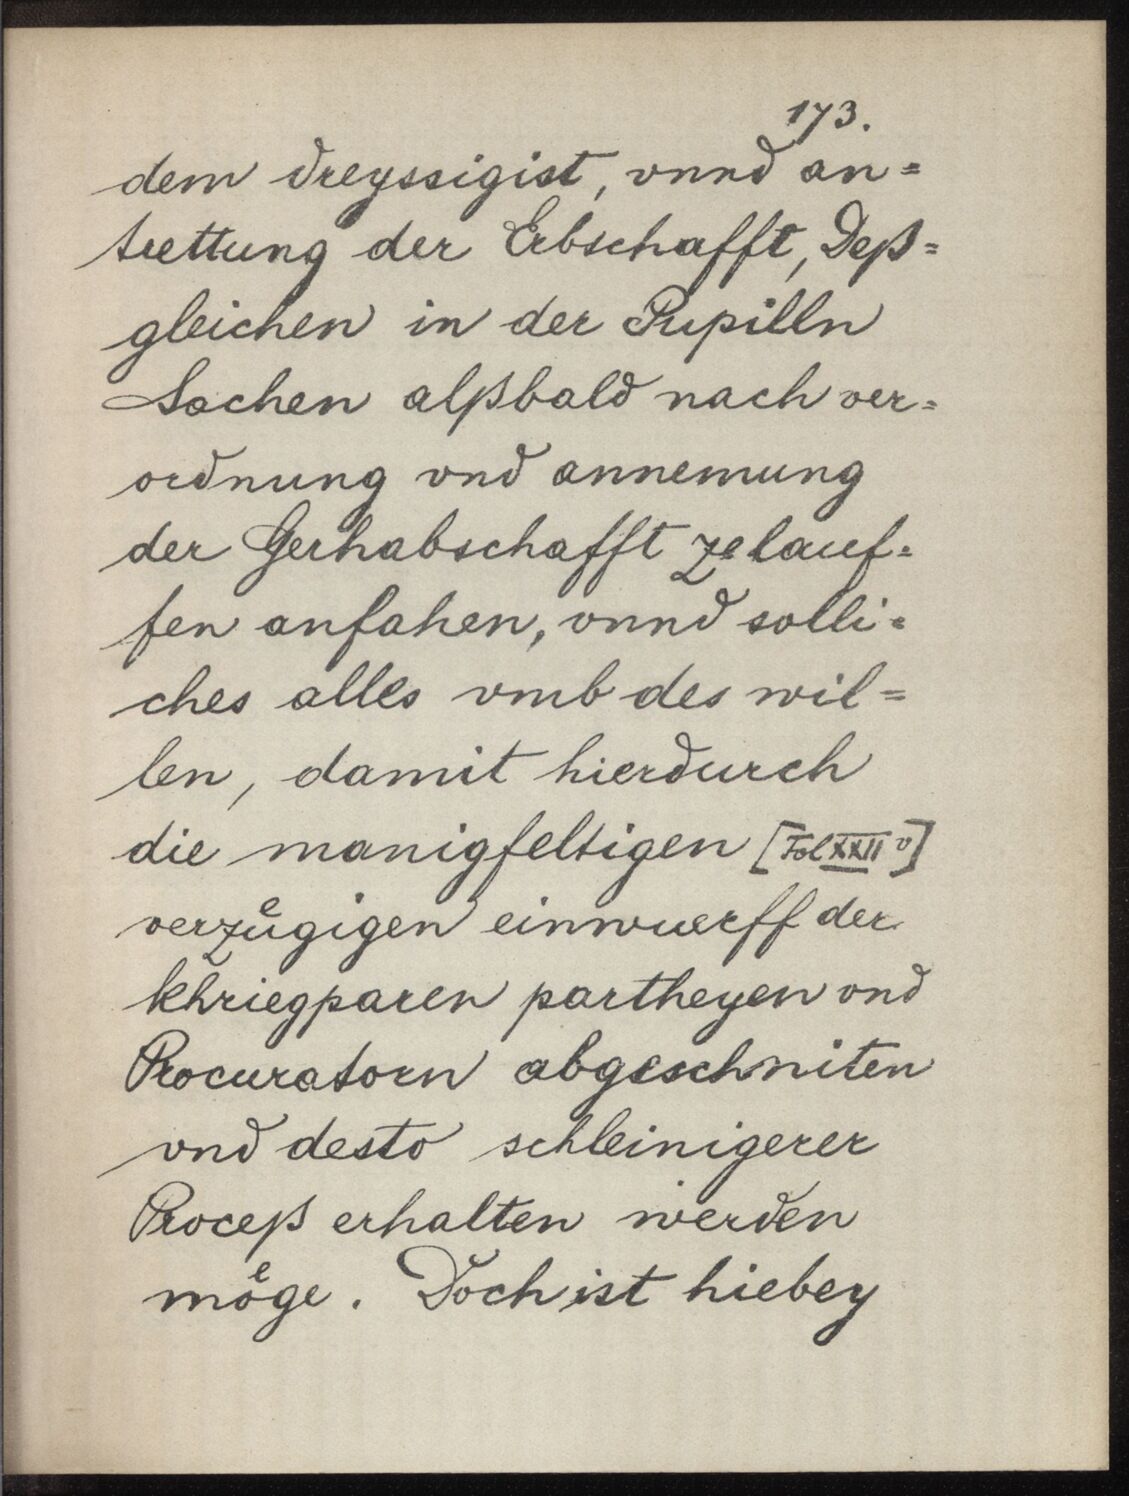 173.
dem dreyssigist, vnnd an=
trettung der Erbschafft, Deß=
gleichen in der Pupilln
Sachen alßbald nach ver=
ordnung vnd annemung
der Gerhabschafft ze lauf=
fen anfahen, vnnd solli=
ches alles vmb des wil=
len, damit hierdurch
die manigfeltigen [Fol XXII v]
verzuͤgigen einwuerff der
khriegparen partheyen vnd
Procuratorn abgeschniten
vnd desto schleinigerer
Proceß erhalten werden
moͤge. Doch ist hiebey